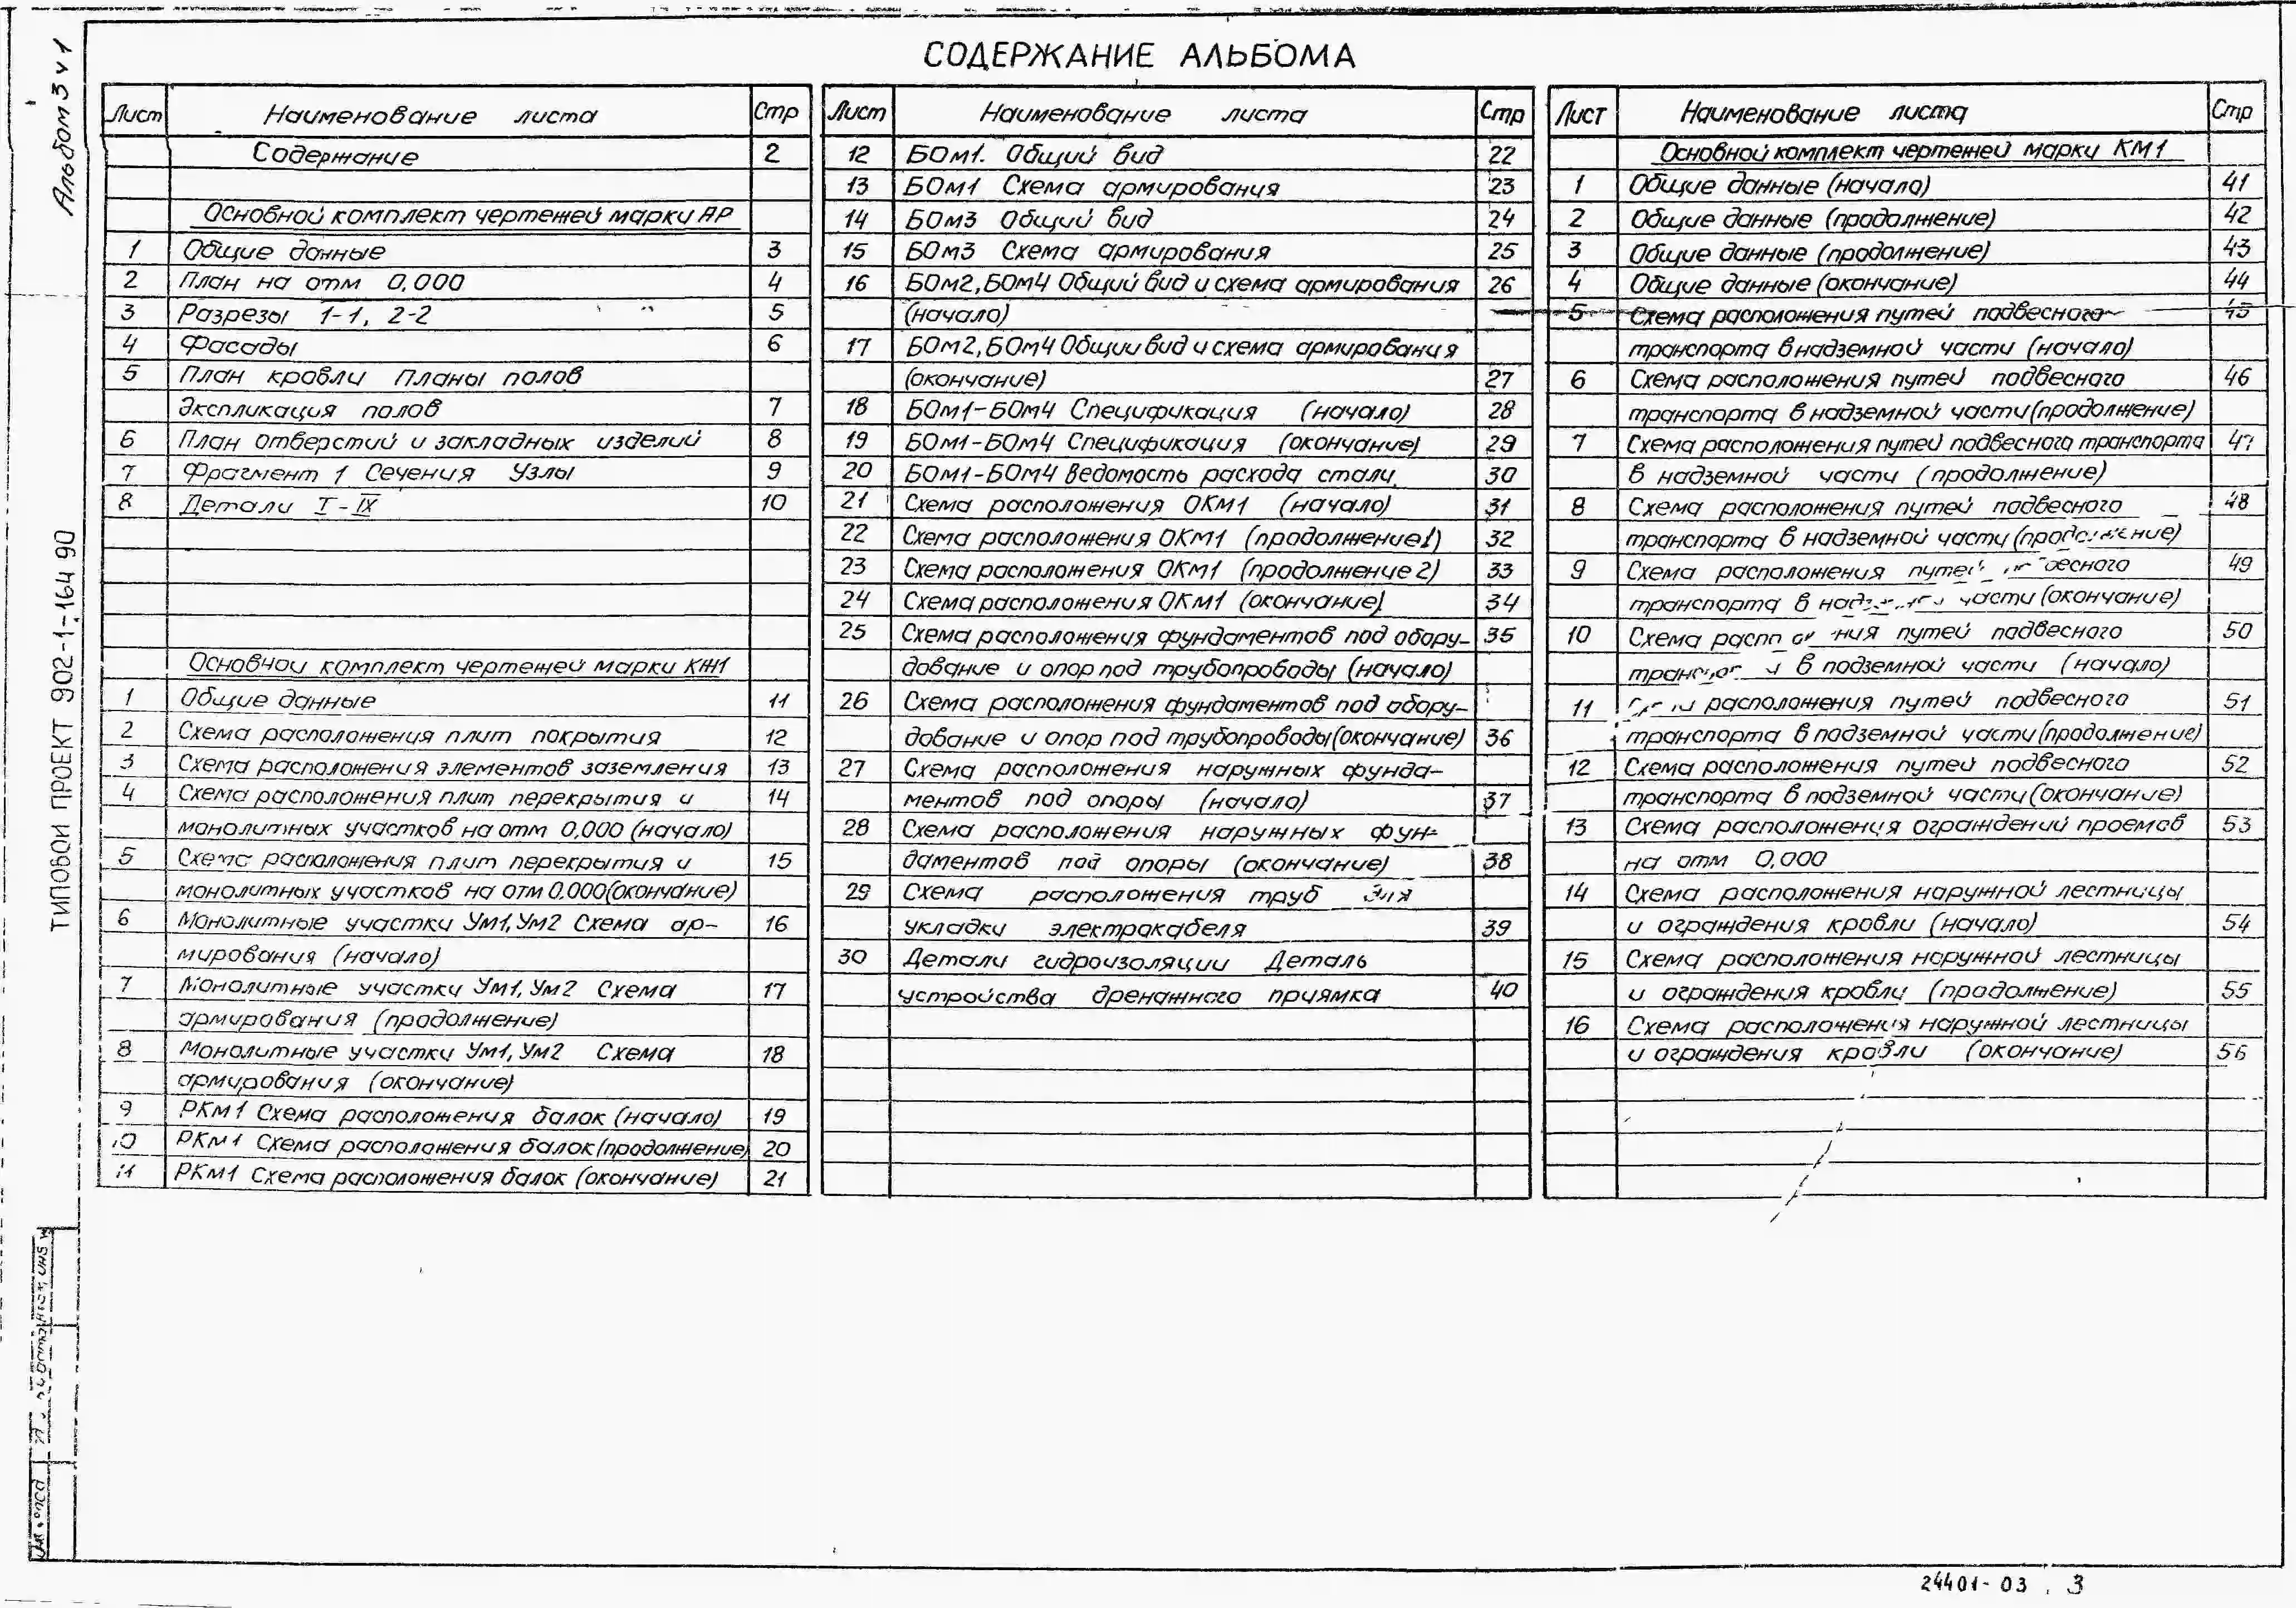 СОДЕРЖАНИЕ АЛЬБОМА
Альбом 3 ч 1
ТИПОВОЙ ПРОЕКТ 902-1-164 90
Лист Наименование листа Стр
Содержание 2
Основной комплект чертежей марки АР
1 Общие данные 3
2 План на отм 0,000 4
3 Разрезы 1-1, 2-2 5
4 Фасады 6
5 План кровли Планы полов
Экспликация полов 7
6 План отверстий и закладных изделий 8
7 Фрагмент 1 Сечения Узлы 9
8 Детали I-IX 10
Основной комплект чертежей марки КЖ1
1 Общие данные 11
2 Схема расположения плит покрытия 12
3 Схема расположения элементов заземления 13
4 Схема расположения плит перекрытия и 14
монолитных участков на отм 0,000 (начало)
5 Схема расположения плит перекрытия и 15
монолитных участков на отм 0.000 (окончание)
6 Монолитные участки Ум1, Ум2 Схема ар- 16
мирования (начало)
7 Монолитные участки Ум1, Ум2 Схема 17
армирования (продолжение)
8 Монолитные участки Ум1, Ум2 Схема 18
армирования (окончание)
9 РКм1 Схема расположения балок (начало) 19
10 РКм1 Схема расположения балок (продолжение) 20
11 РКм1 Схема расположения балок (окончание) 21
Лист Наименование листа Стр
12 БОм1. Общий вид 22
13 БОм1 Схема армирования 23
14 БОм3 Общий вид 24
15 БОм3 Схема армирования 25
16 БОм2, БОм4 Общий вид и схема армирования 26
(начало)
17 БОм2, БОм4 Общий вид и схема армирования
(окончание) 27
18 БОм1-БОм4 Спецификация (начало) 28
19 БОм1-БОм4 Спецификация (окончание) 29
20 БОм1-БОм4 Ведомость расхода стали 30
21 Схема расположения ОКм1 (начало) 31
22 Схема расположения ОКм1 (продолжение1) 32
23 Схема расположения ОКм1 (продолжение 2) 33
24 Схема расположения ОКм1 (окончание) 34
25 Схема расположения фундаментов под обору- 35
дование и опор под трубопроводы (начало)
26 Схема расположения фундаментов под обору-
дование и опор под трубопроводы (окончание) 36
27 Схема расположения наружных фунда-
ментов под опоры (начало) 37
28 Схема расположения наружных фун-
даментов под опоры (окончание) 38
29 Схема расположения труб для
укладки электрокабеля 39
30 Детали гидроизоляции Деталь
устройства дренажного приямка 40
Лист Наименование листа Стр
Основной комплект чертежей марки КМ1
1 Общие данные (начало) 41
2 Общие данные (продолжение) 42
3 Общие данные (продолжение) 43
4 Общие данные (окончание) 44
5 Схема расположения путей подвесного 45
транспорта в надземной части (начало)
6 Схема расположения путей подвесного 46
транспорта в надземной части (продолжение)
7 Схема расположения путей подвесного транспорта 47
в надземной части (продолжение)
8 Схема расположения путей подвесного 48
транспорта в надземной части (продолжение)
9 Схема расположения путей подвесного 49
транспорта в надземной части (окончание)
10 Схема расположения путей подвесного 50
транспорта в подземной части (начало)
11 Схема расположения путей подвесного 51
транспорта в подземной части (продолжение)
12 Схема расположения путей подвесного 52
транспорта в подземной части (окончание)
13 Схема расположения ограждений проемов 53
на отм 0,000
14 Схема расположения наружной лестницы
и ограждения кровли (начало) 54
15 Схема расположения наружной лестницы
и ограждения кровли (продолжение) 55
16 Схема расположения наружной лестницы
и ограждения кровли (окончание) 56
24401-03 3